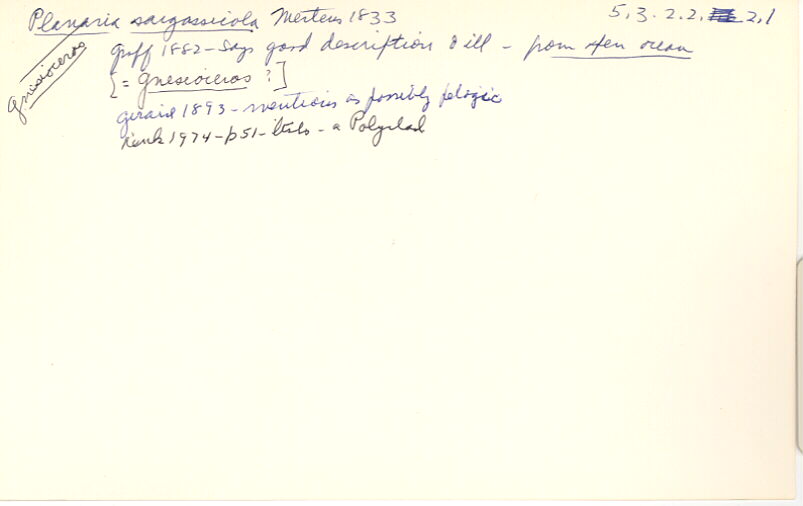 Planaria sargassicola Mertens 1833 5.3.2.2. 2,1
Gnesioceros
Graff 1882 - says good description & ill - from open ocean
[= Gnesioceros ?]
Girard 1893 - mentions as possibly pelagic
1974 - p51 - lists - a Polyclad